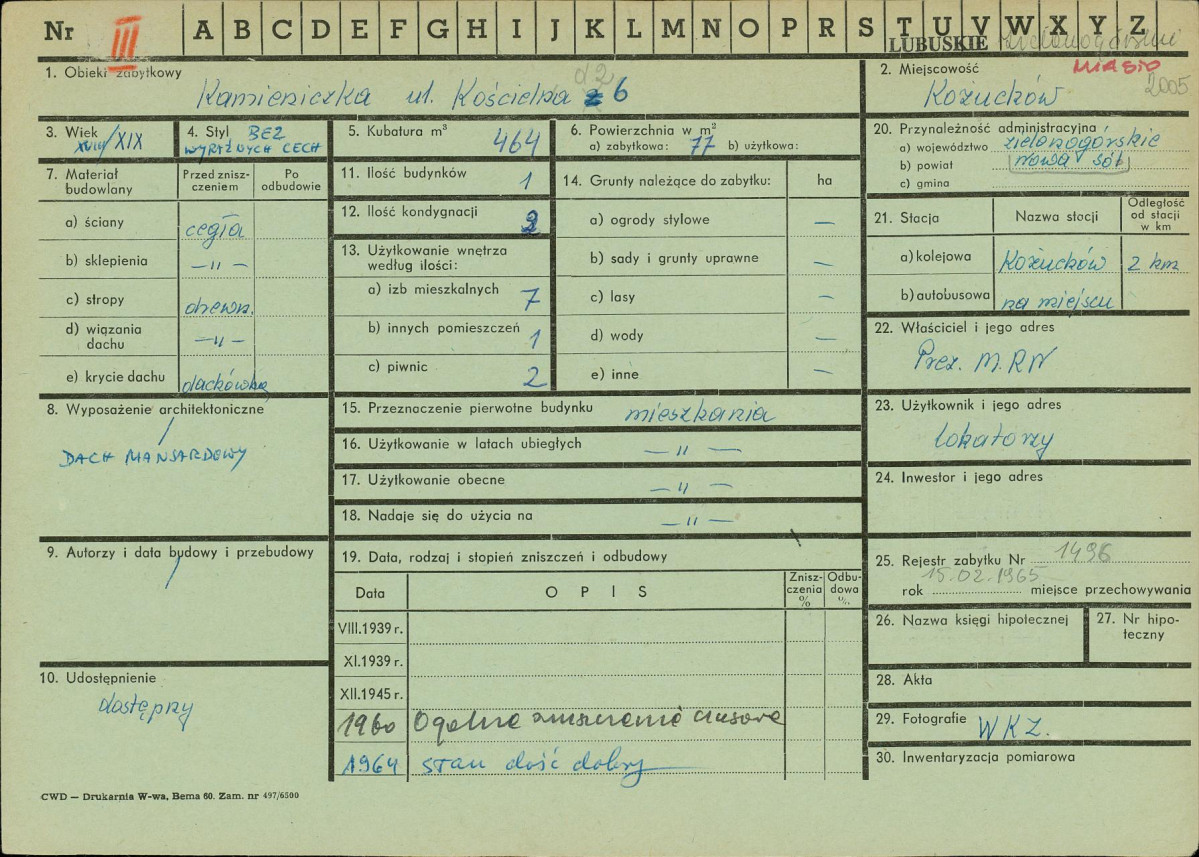 Nr III A B C D E F G H I J K L M N O P R S T U V W X Y Z
LUBUSKIE
1. Obiekt zabytkowy
Kamieniczka ul. Kościelna 6
2. Miejscowość MIASTO
Kożuchów 2005
3. Wiek
XVIII/XIX
4. Styl BEZ
WYRAŹNYCH CECH
5. Kubatura m³ 464
6. Powierzchnia w m²
a) zabytkowa: 77 b) użytkowa:
20. Przynależność administracyjna
a) województwo zielonogórskie
b) powiat nowa sól
c) gmina
7. Materiał budowlany
Przed zniszczeniem
Po odbudowie
a) ściany cegła
b) sklepienia —"—
c) stropy drewn.
d) wiązania dachu —"—
e) krycie dachu dachówka
11. Ilość budynków 1
12. Ilość kondygnacji
13. Użytkowanie wnętrza
według ilości:
a) izb mieszkalnych 7
b) innych pomieszczeń 1
c) piwnic 2
14. Grunty należące do zabytku: ha
a) ogrody stylowe —
b) sady i grunty uprawne —
c) lasy —
d) wody —
e) inne —
21. Stacja
Nazwa stacji
Odległość od stacji w km
a) kolejowa Kożuchów 2 km
b) autobusowa na miejscu
22. Właściciel i jego adres
Prez. M.RN
8. Wyposażenie architektoniczne
DACH MANSARDOWY
15. Przeznaczenie pierwotne budynku mieszkania
16. Użytkowanie w latach ubiegłych —"—
17. Użytkowanie obecne —"—
18. Nadaje się do użycia na —"—
23. Użytkownik i jego adres
lokatorzy
24. Inwestor i jego adres
9. Autorzy i data budowy i przebudowy
19. Data, rodzaj i stopień zniszczeń i odbudowy
Data
O P I S
Zniszczenia %
Odbudowa %
VIII.1939 r.
XI.1939 r.
XII.1945 r.
1960 Ogólne zniszczenie czasowe
1964 stan dość dobry
25. Rejestr zabytku Nr 1496
15.02.1965
rok miejsce przechowywania
26. Nazwa księgi hipotecznej
27. Nr hipoteczny
10. Udostępnienie
dostępny
28. Akta
29. Fotografie WKZ.
30. Inwentaryzacja pomiarowa
CWD — Drukarnia W-wa, Bema 60. Zam. nr 497/6500